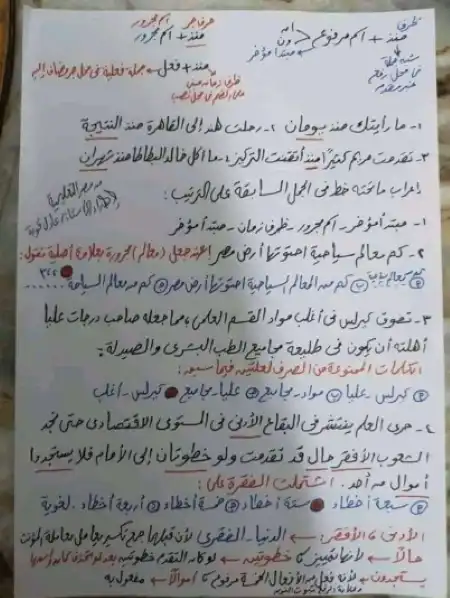 حرف جر اسم مجرور
منذ + اسم مجرور
ظرف
منذ + اسم مرفوع
ان
ون
مبتدأ مؤخر
شبه جملة
في محل رفع
خبر مقدم
منذ + فعل ← جملة فعلية في محل جر مضاف إليه
ظرف زمان مبنى
على الضم في محل نصب
١- ما رأيتك منذ يومان ٢- رحلت هند إلى القاهرة منذ النتيجة
٣- تقدمت مريم كثيرًا منذ أتقنت التركيز ٤- ما أكل خالد البطاطا منذ شهران
إعراب ما تحته خط في الجمل السابقة على الترتيب:
١- مبتدأ مؤخر - اسم مجرور - ظرف زمان - مبتدأ مؤخر
٢- كم معالم سياحية احتوتها أرض مصر اعند جعل (معالم) مجرورة بعلامة أصلية نقول:
كم من المعالم السياحية احتوتها أرض مصر كم من معالم السياحة
٣- تفوق كيرلس في أغلب مواد القسم العلمي؛ مما جعله صاحب درجات عليا
أهلته أن يكون في طليعة مجاميع الطب البشري والصيدلة.
الكلمات الممنوعة من الصرف لعلتين فيما سبق:
كيرلس - عليا مواد - مجاميع عليا - مجاميع كيرلس - أغلب
٤- حرى العلم ينتشر في البقاع الأدنى في المستوى الاقتصادي حتى نجد
الشعوب الأفقر حال قد تقدمت ولو خطوتان إلى الأمام فلا يستجدوا
أموال من أحد. اشتملت الفقرة على:
سبعة أخطاء ستة أخطاء خمسة أخطاء أربعة أخطاء لغوية
الأدنى، الأفقر: ← الدنيا - الفقرى لأن قبلها جمع تكسير
حالًا ← لأنها تمييز خطوتين ←
يستجدون ← لأنه فعل من الأفعال الخمسة مرفوع أموالًا ← مفعول به
وعلامة رفعه ثبوت النون